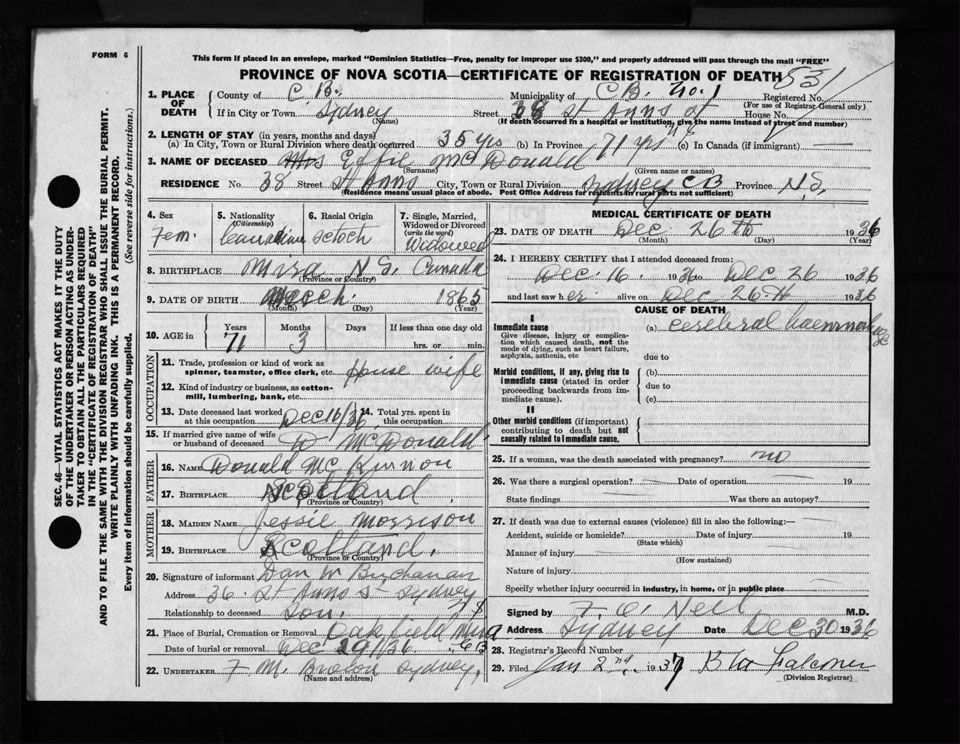 FORM 6
This form if placed in an envelope, marked "Dominion Statistics—Free, penalty for improper use $300," and properly addressed will pass through the mail "FREE"
PROVINCE OF NOVA SCOTIA—CERTIFICATE OF REGISTRATION OF DEATH
531
Registered No.
(For use of Registrar General only)
1. PLACE OF DEATH
County of C B.
Municipality of C B. No. 1
If in City or Town Sydney
(Name)
Street 38 St Anns St House No.
(If death occurred in a hospital or institution, give the name instead of street and number)
2. LENGTH OF STAY (in years, months and days)
(a) In City, Town or Rural Division where death occurred 35 yrs (b) In Province 71 yrs (c) In Canada (if immigrant)
3. NAME OF DECEASED Mrs Effie McDonald
(Surname) (Given name or names)
RESIDENCE No. 38 Street St Anns City, Town or Rural Division Sydney CB Province N.S.
(Residence means usual place of abode. Post Office Address for residents in rural parts not sufficient)
4. Sex
Fem.
5. Nationality
(Citizenship)
Canadian
6. Racial Origin
Scotch
7. Single, Married, Widowed or Divorced
(write the word)
Widowed
8. BIRTHPLACE Mira N S. Canada
(Province or Country)
9. DATE OF BIRTH March 1865
(Month) (Day) (Year)
10. AGE in
Years Months Days If less than one day old
71 3 hrs. or min.
OCCUPATION
11. Trade, profession or kind of work as spinner, teamster, office clerk, etc. House wife
12. Kind of industry or business, as cotton-mill, lumbering, bank, etc.
13. Date deceased last worked at this occupation Dec 16/36
14. Total yrs. spent in this occupation
15. If married give name of wife or husband of deceased D McDonald
FATHER
16. NAME Donald McKinnon
17. BIRTHPLACE Scotland
(Province or Country)
MOTHER
18. MAIDEN NAME Jessie Morrison
19. BIRTHPLACE Scotland.
(Province or Country)
20. Signature of informant Dan W Buchanan
Address 36 St Anns St Sydney
N S
Relationship to deceased Son.
21. Place of Burial, Cremation or Removal Oakfield Mira
C B
Date of burial or removal Dec 29/36
22. UNDERTAKER F M. Sydney,
(Name and address)
MEDICAL CERTIFICATE OF DEATH
23. DATE OF DEATH Dec 26th 1936
(Month) (Day) (Year)
24. I HEREBY CERTIFY that I attended deceased from:
Dec. 16. 1936 to Dec 26 1936
and last saw her alive on Dec 26th 1936
CAUSE OF DEATH
I
Immediate cause
Give disease, injury or complication which caused death, not the mode of dying, such as heart failure, asphyxia, asthenia, etc
(a) cerebral haemorrhage
due to
Morbid conditions, if any, giving rise to immediate cause (stated in order proceeding backwards from immediate cause).
(b)
due to
(c)
II
Other morbid conditions (if important) contributing to death but not causally related to immediate cause.
25. If a woman, was the death associated with pregnancy? no
26. Was there a surgical operation? Date of operation 19
State findings Was there an autopsy?
27. If death was due to external causes (violence) fill in also the following:—
Accident, suicide or homicide? Date of injury 19
(State which)
Manner of injury
(How sustained)
Nature of injury
Specify whether injury occurred in industry, in home, or in public place
Signed by F O'Neil M.D.
Address Sydney Date Dec 30 1936
28. Registrar's Record Number
29. Filed Jan 2nd. 1937 Falconer
(Division Registrar)
SEC. 46—VITAL STATISTICS ACT MAKES IT THE DUTY
OF THE UNDERTAKER OR PERSON ACTING AS UNDER-
TAKER TO OBTAIN ALL THE PARTICULARS REQUIRED
IN THE "CERTIFICATE OF REGISTRATION OF DEATH"
AND TO FILE THE SAME WITH THE DIVISION REGISTRAR WHO SHALL ISSUE THE BURIAL PERMIT.
WRITE PLAINLY WITH UNFADING INK. THIS IS A PERMANENT RECORD.
Every item of information should be carefully supplied. (See reverse side for instructions.)